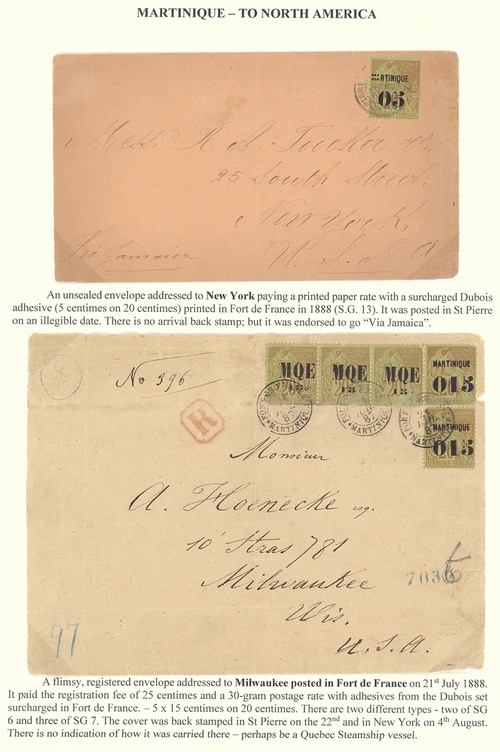 MARTINIQUE – TO NORTH AMERICA
MARTINIQUE
05
Mess. R. A. Tucker
25 South Street.
New York.
Via Jamaica
U. S. A
An unsealed envelope addressed to New York paying a printed paper rate with a surcharged Dubois
adhesive (5 centimes on 20 centimes) printed in Fort de France in 1888 (S.G. 13). It was posted in St Pierre
on an illegible date. There is no arrival back stamp; but it was endorsed to go “Via Jamaica”.
MQE MQE MQE MARTINIQUE
15c 15c 15c 015
No 396
R
MARTINIQUE MARTINIQUE MARTINIQUE
MARTINIQUE
015
Monsieur
A. Hoenecke esq.
10' Stras 781
Milwaukee
Wis.
U.S.A.
97
A flimsy, registered envelope addressed to Milwaukee posted in Fort de France on 21st July 1888.
It paid the registration fee of 25 centimes and a 30-gram postage rate with adhesives from the Dubois set
surcharged in Fort de France. – 5 x 15 centimes on 20 centimes. There are two different types - two of SG
6 and three of SG 7. The cover was back stamped in St Pierre on the 22nd and in New York on 4th August.
There is no indication of how it was carried there – perhaps be a Quebec Steamship vessel.